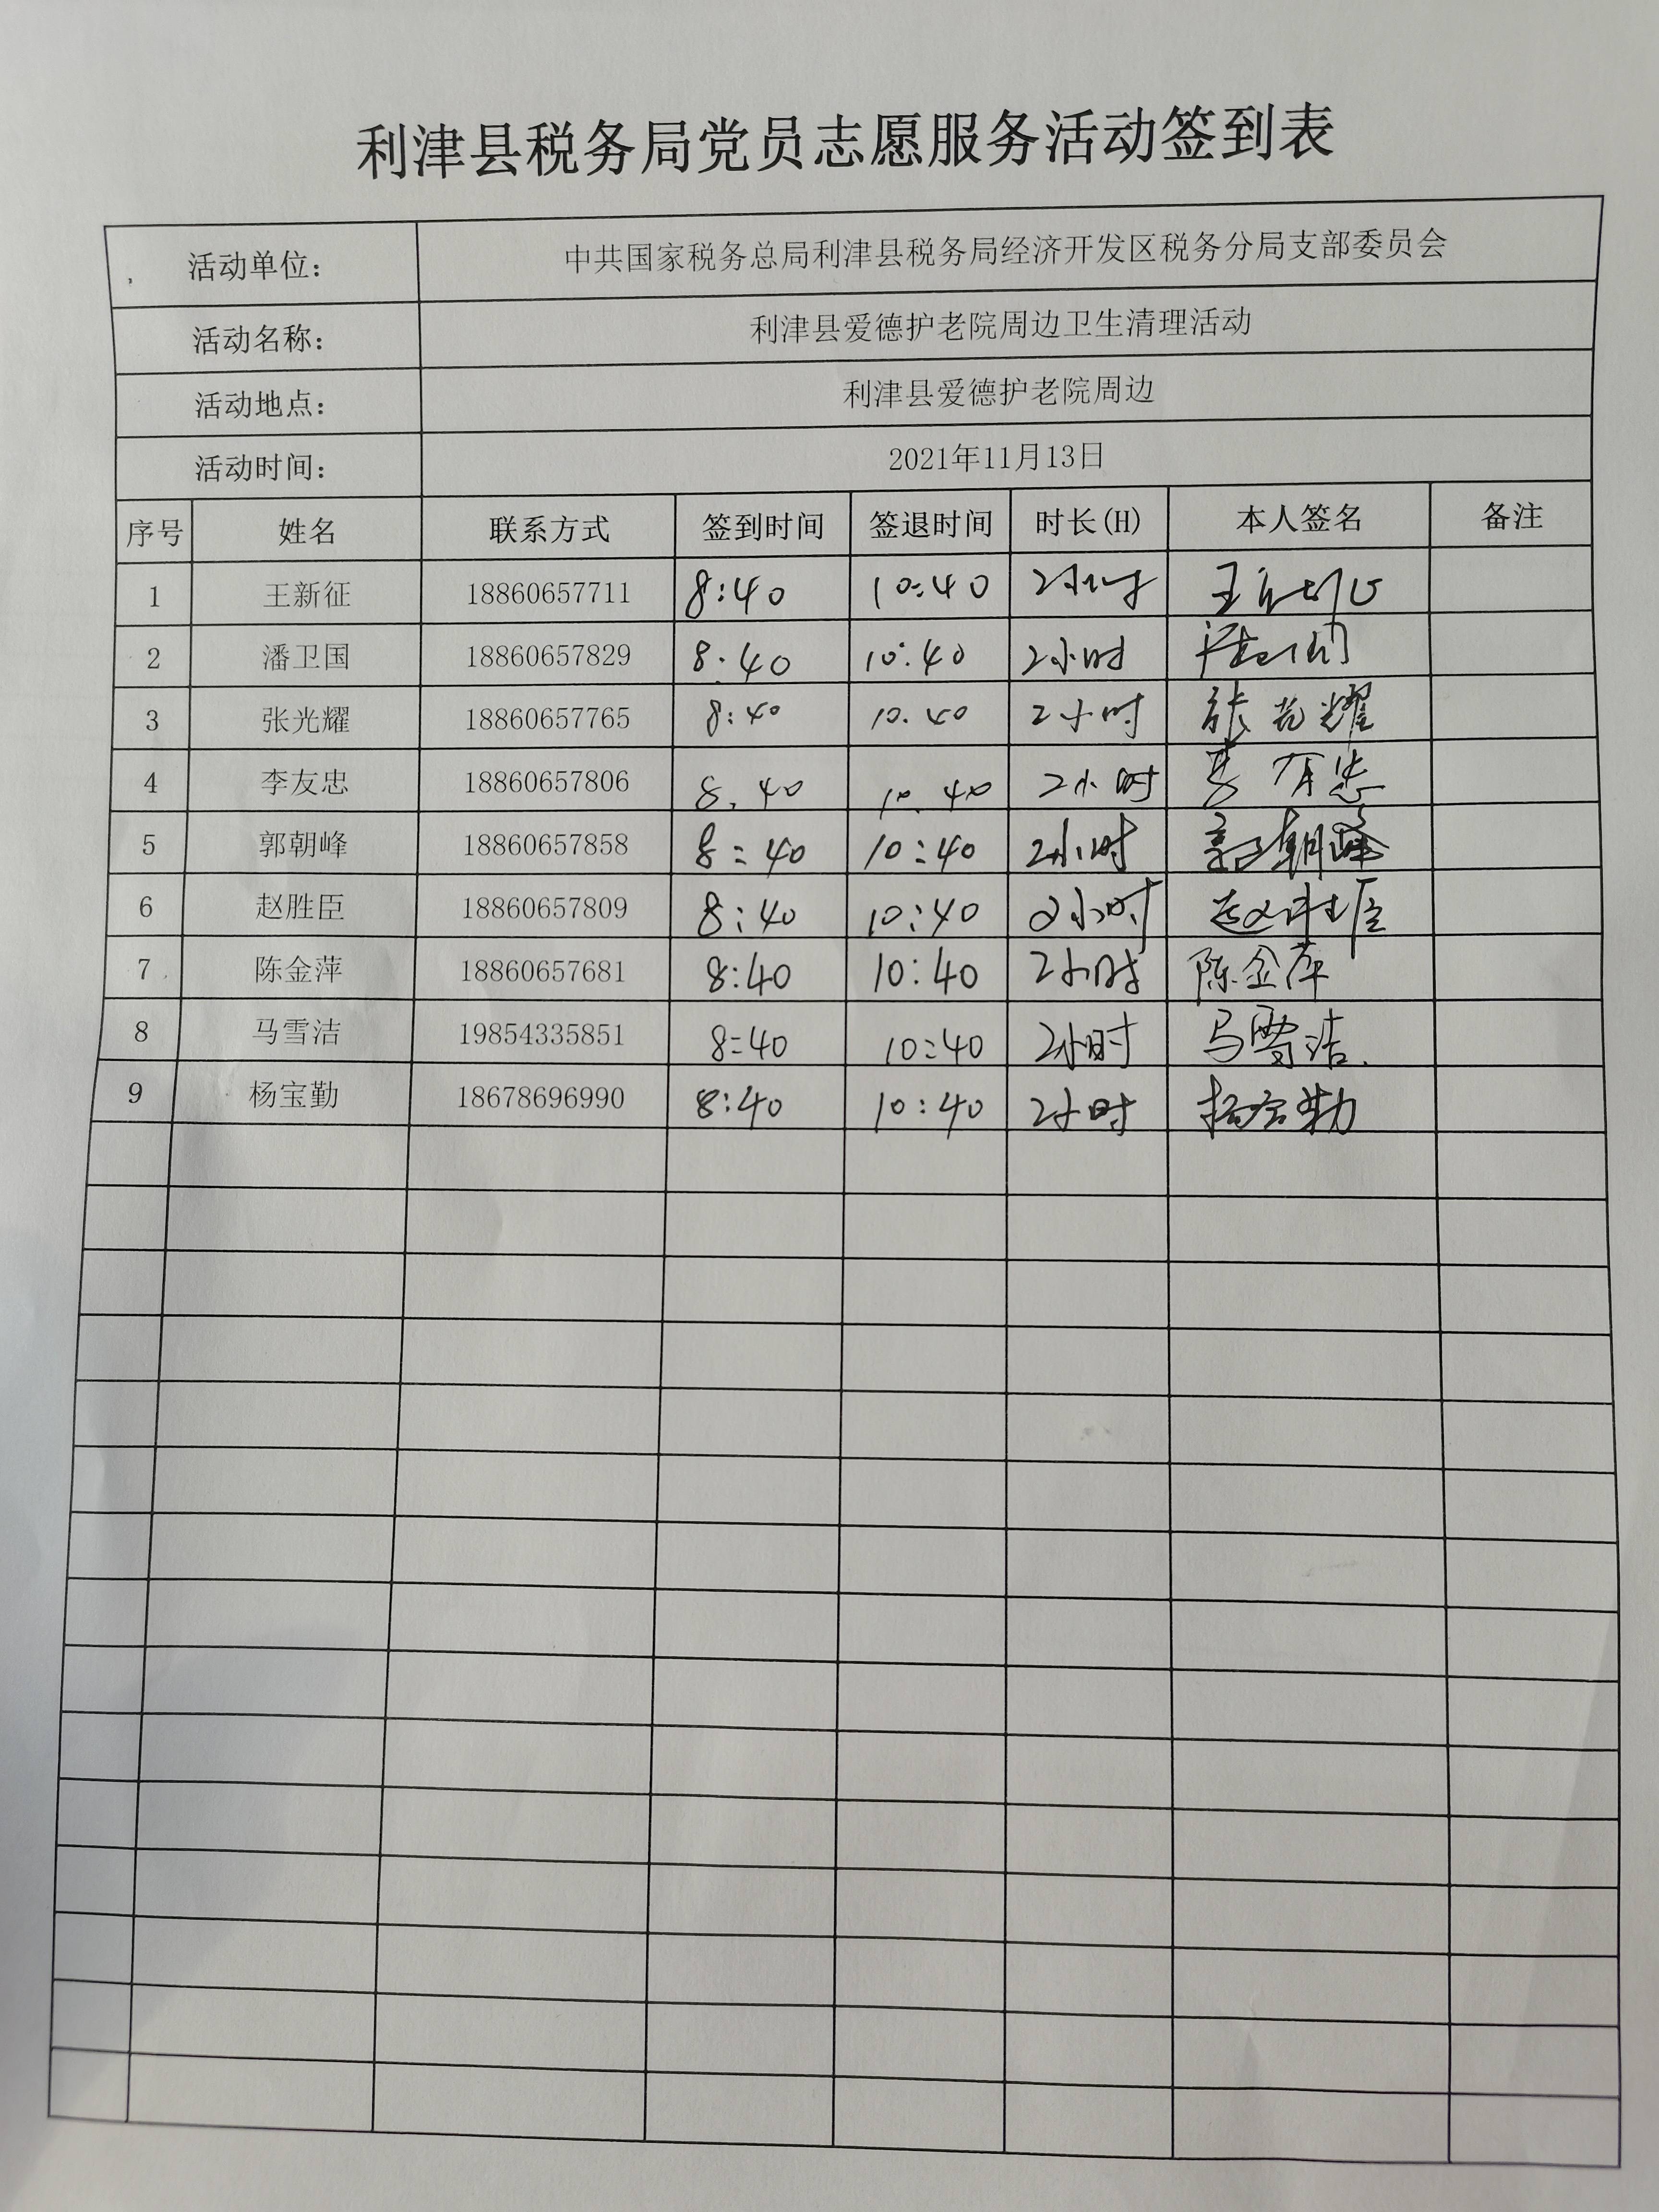 利津县税务局党员志愿服务活动签到表
活动单位: 中共国家税务总局利津县税务局经济开发区税务分局支部委员会
活动名称: 利津县爱德护老院周边卫生清理活动
活动地点: 利津县爱德护老院周边
活动时间: 2021年11月13日
序号 姓名 联系方式 签到时间 签退时间 时长(H) 本人签名 备注
1 王新征 18860657711 8:40 10:40 2小时
2 潘卫国 18860657829 8:40 10:40 2小时
3 张光耀 18860657765 8:40 10.40 2小时 张光耀
4 李友忠 18860657806 8.40 10.40 2小时
5 郭朝峰 18860657858 8:40 10:40 2小时 郭朝峰
6 赵胜臣 18860657809 8:40 10:40 2小时 赵胜臣
7 陈金萍 18860657681 8:40 10:40 2小时 陈金萍
8 马雪洁 19854335851 8:40 10:40 2小时 马雪洁
9 杨宝勤 18678696990 8:40 10:40 2小时 杨宝勤